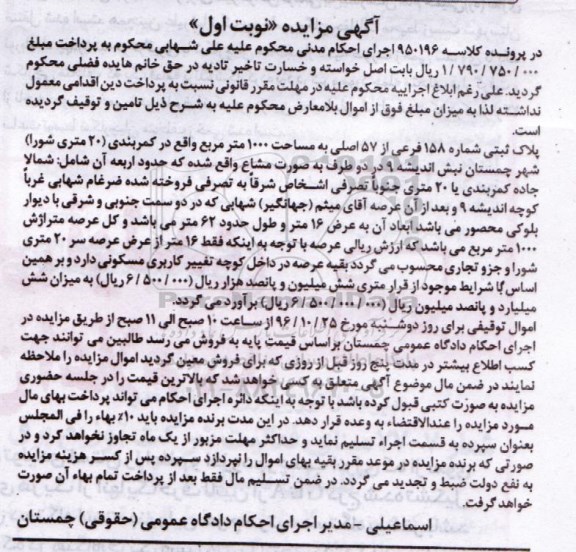 آگهی مزایده «نوبت اول»
در پرونده کلاسه ۹۵۰۱۹۶ اجرای احکام مدنی محکوم علیه علی شهابی محکوم به پرداخت مبلغ
۱/۷۹۰/۷۵۰/۰۰۰ ریال بابت اصل خواسته و خسارت تاخیر تادیه در حق خانم هایده فضلی محکوم
گردید. علی رغم ابلاغ اجراییه محکوم علیه در مهلت مقرر قانونی نسبت به پرداخت دین اقدامی معمول
نداشته لذا به میزان مبلغ فوق از اموال بلامعارض محکوم علیه به شرح ذیل تامین و توقیف گردیده
است.
پلاک ثبتی شماره ۱۵۸ فرعی از ۵۷ اصلی به مساحت ۱۰۰۰ متر مربع واقع در کمربندی (۲۰ متری شورا)
شهر چمستان نبش اندیشه ۹ در دو طرف به صورت مشاع واقع شده که حدود اربعه آن شامل: شمالا
جاده کمربندی یا ۲۰ متری جنوباً تصرفی اشخاص شرقاً به تصرفی فروخته شده ضرغام شهابی غرباً
کوچه اندیشه ۹ و بعد از آن عرصه آقای میثم (جهانگیر) شهابی که در دو سمت جنوبی و شرقی با دیوار
بلوکی محصور می باشد ابعاد آن به عرض ۱۶ متر و طول حدود ۶۲ متر می باشد و کل عرصه متراژش
۱۰۰۰ متر مربع می باشد که ارزش ریالی عرصه با توجه به اینکه فقط ۱۶ متر از عرض عرصه سر ۲۰ متری
شورا و جزو تجاری محسوب می گردد بقیه عرصه در داخل کوچه تغییر کاربری مسکونی دارد و بر همین
اساس با شرایط موجود از قرار متری شش میلیون و پانصد هزار ریال (۶/۵۰۰/۰۰۰ ریال) به میزان شش
میلیارد و پانصد میلیون ریال (۶/۵۰۰/۰۰۰/۰۰۰ ریال) برآورد می گردد.
اموال توقیفی برای روز دوشنبه مورخ ۹۶/۱۰/۲۵ از ساعت ۱۰ صبح الی ۱۱ صبح از طریق مزایده در
اجرای احکام دادگاه عمومی چمستان بر اساس قیمت پایه به فروش می رسد طالبین می توانند جهت
کسب اطلاع بیشتر در مدت پنج روز قبل از روزی که برای فروش معین گردید اموال مزایده را ملاحظه
نمایند در ضمن مال موضوع آگهی متعلق به کسی خواهد شد که بالاترین قیمت را در جلسه حضوری
مزایده به صورت کتبی قبول کرده باشد با توجه به اینکه دائره اجرای احکام می تواند پرداخت بهای مال
مورد مزایده را عندالاقتضاء به وعده قرار دهد. در این مدت برنده مزایده باید ۱۰٪ بهاء را فی المجلس
بعنوان سپرده به قسمت اجراء تسلیم نماید و حداکثر مهلت مزبور از یک ماه تجاوز نخواهد کرد و در
صورتی که برنده مزایده در موعد مقرر بقیه بهای اموال را نپردازد سپرده پس از کسر هزینه مزایده
به نفع دولت ضبط و تجدید می گردد. در ضمن تسلیم مال فقط بعد از پرداخت تمام بهاء آن صورت
خواهد گرفت.
اسماعیلی - مدیر اجرای احکام دادگاه عمومی (حقوقی) چمستان